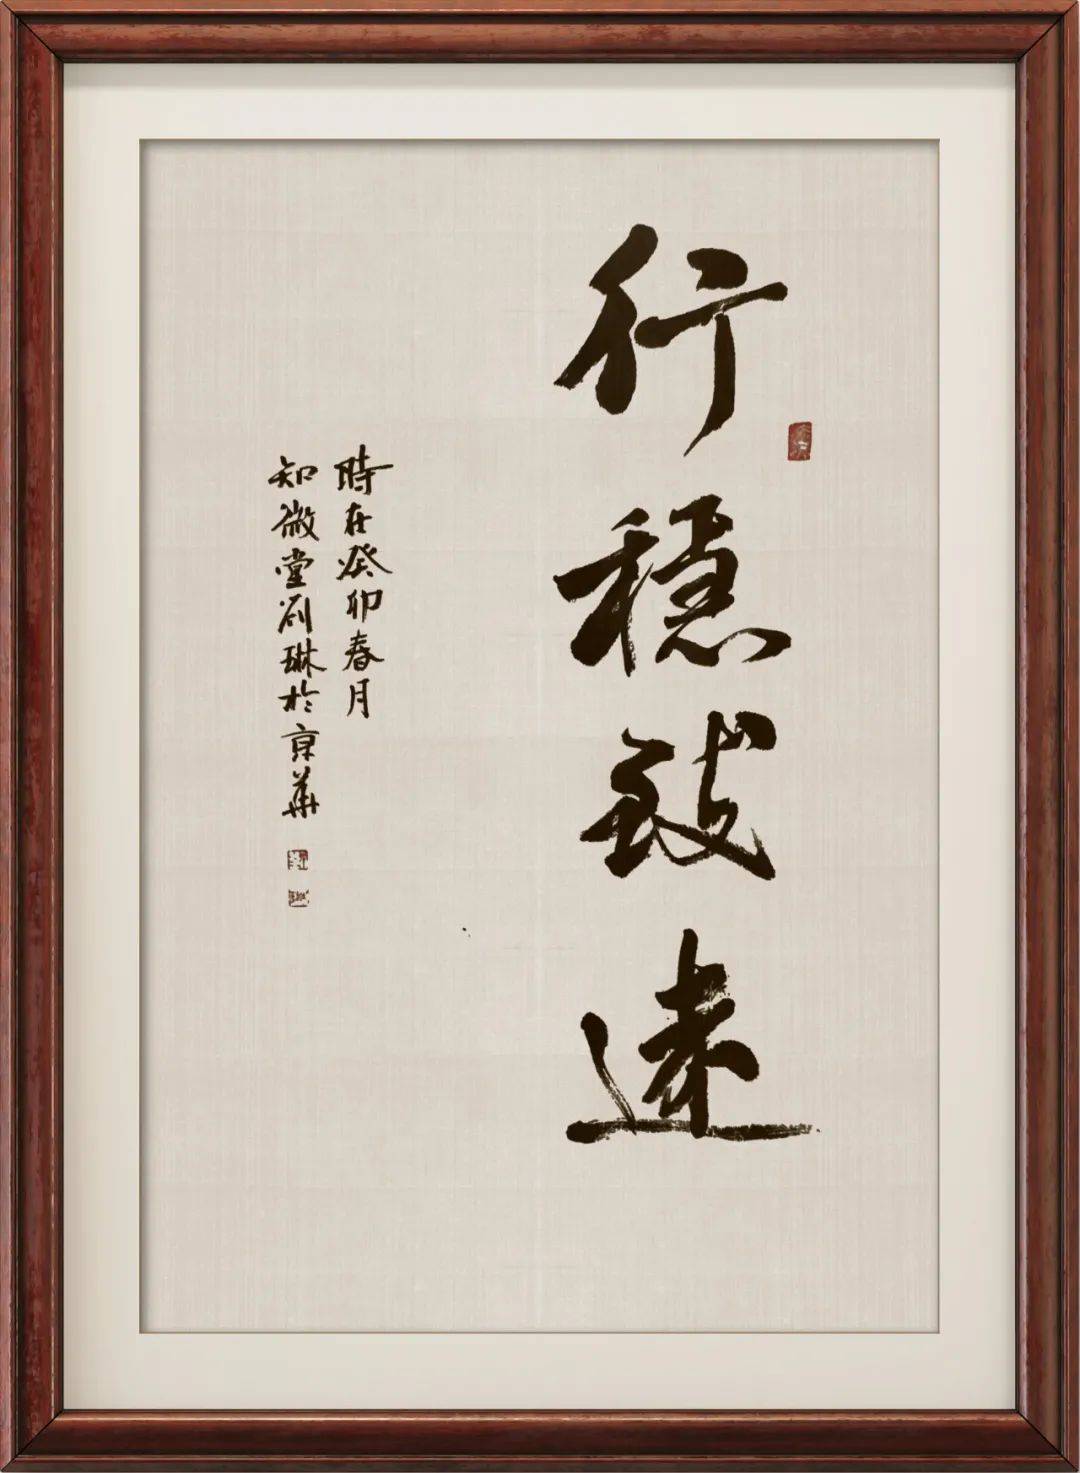 行穩致遠
時在癸卯春月
知微堂刘琳於京華